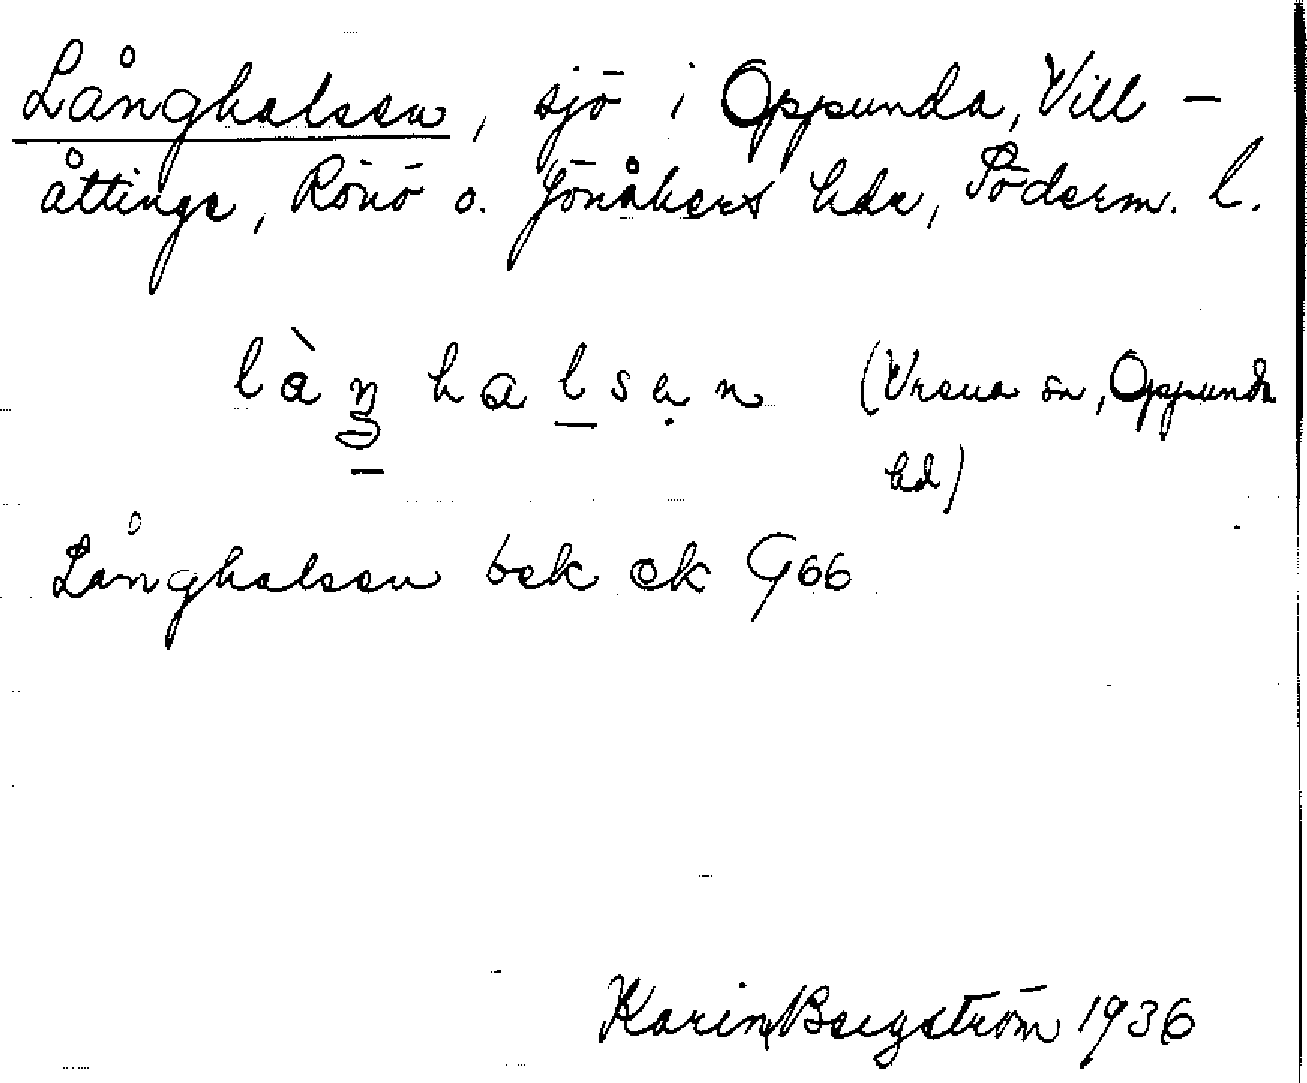 Långhalsen, sjö i Oppunda, Vill-
åttinge, Rönö o. Jönåkers hdr, Söderm. l.
làŋhalsen (Vrena sn, Oppunda
hd)
Långhalsen bek ek G66
Karin Bergström 1936